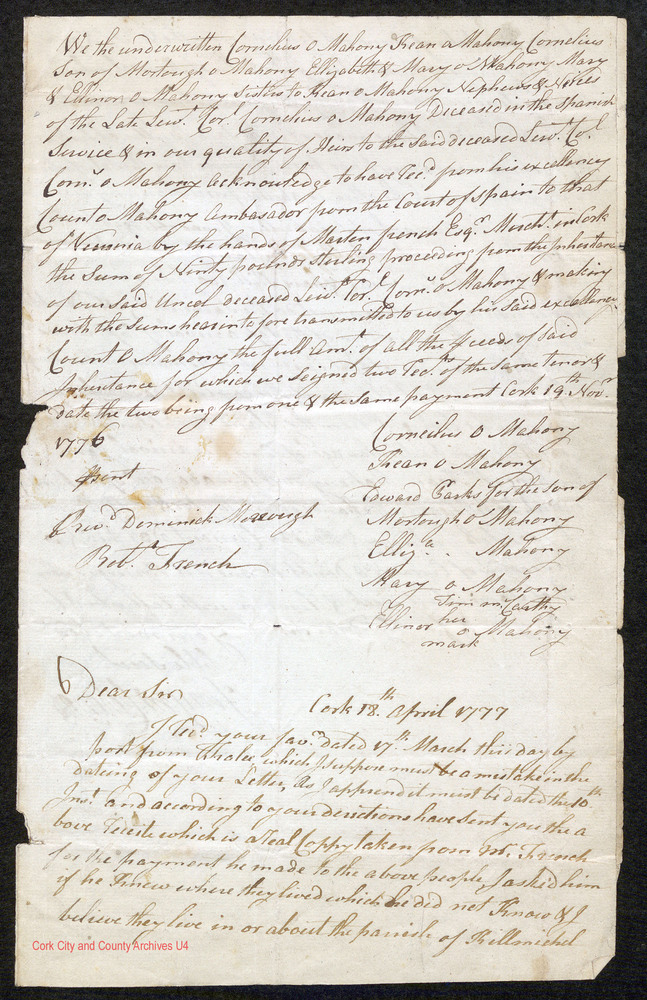 We the underwritten Cornelius o Mahony Kean o Mahony Cornelius
Son of Mortough o Mahony Ellizabeth & Mary o Mahony Mary
& Ellinor o Mahony Sisters to Kean o Mahony Nephews & Neices
of the Late Lewt. Corl. Cornelius o Mahony Deceased in the Spanish
Service & in our quality of Heirs to the said deceased Lewt. Col.
Corns. o Mahony acknowledge to have Recd. from his excellency
Count o Mahony Ambasador from the Court of Spain to that
of Viennia by the hands of Marten french Esqr. Mercht. in Cork
the Sum of Ninty pounds sterling proceeding from the Inheritance
of our Said Uncel deceased Lewt. Corl. Corns. o Mahony & making
with the Sums hearintofore transmitted to us by his Said excellency
Count O Mahony the full amt. of all the pceeds of Said
Inheritance for which we Seigned two Recpts. of the Same tenor &
date the two being from one & the Same payment Cork 19th. Novr.
1776
Cornelius O Mahony
Prsent
Kean o Mahony
Edward Barks for the Son of
Mortough o Mahony
Revd. Dominick Morrough
Elliza. .. Mahony
Robt. French
Mary o Mahony
Tim mcCarthy
Ellinor her o Mahony
mark
Dear Sir
Cork 18.th April 1777
I Recd. your favr. dated 17th. March this day by
post from which I suppose must be a mistake in the
dateing of your Letter, as I apprend it must be dated the 10th.
Inst. and according to your derictions have sent you the a
bove Receite which is a Real Coppy taken from Mr. French
for the payment he made to the above people I asked him
if he Knew where they lived which he did not Know & I
believe they live in or about the parrish of Killmichel
Cork City and County Archives U4